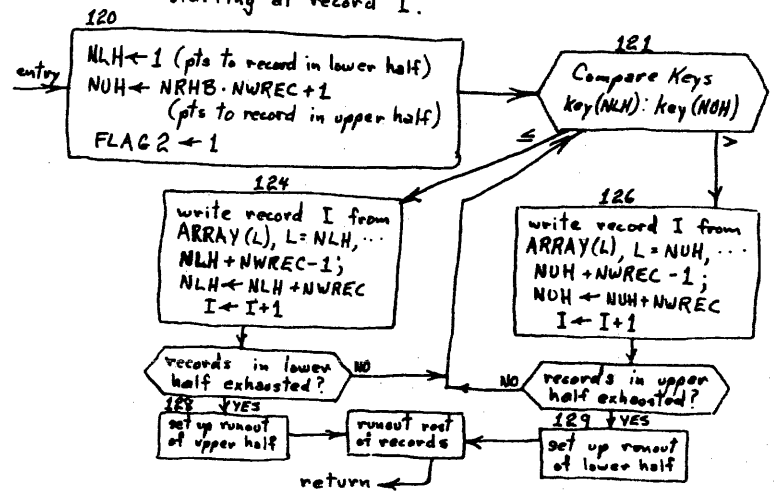 starting at record I.
120
entry
NLH ← 1 (pts to record in lower half)
NUH ← NRHB · NWREC + 1
(pts to record in upper half)
FLAG 2 ← 1
121
Compare Keys
Key(NLH) : Key(NUH)
≤
>
124
write record I from
ARRAY(L), L = NLH, ...
NLH + NWREC - 1;
NLH ← NLH + NWREC
I ← I + 1
126
write record I from
ARRAY(L), L = NUH, ...
NUH + NWREC - 1;
NUH ← NUH + NWREC
I ← I + 1
records in lower
half exhausted?
NO
NO
records in upper
half exhausted?
128
YES
set up runout
of upper half
runout rest
of records
129
YES
set up runout
of lower half
return